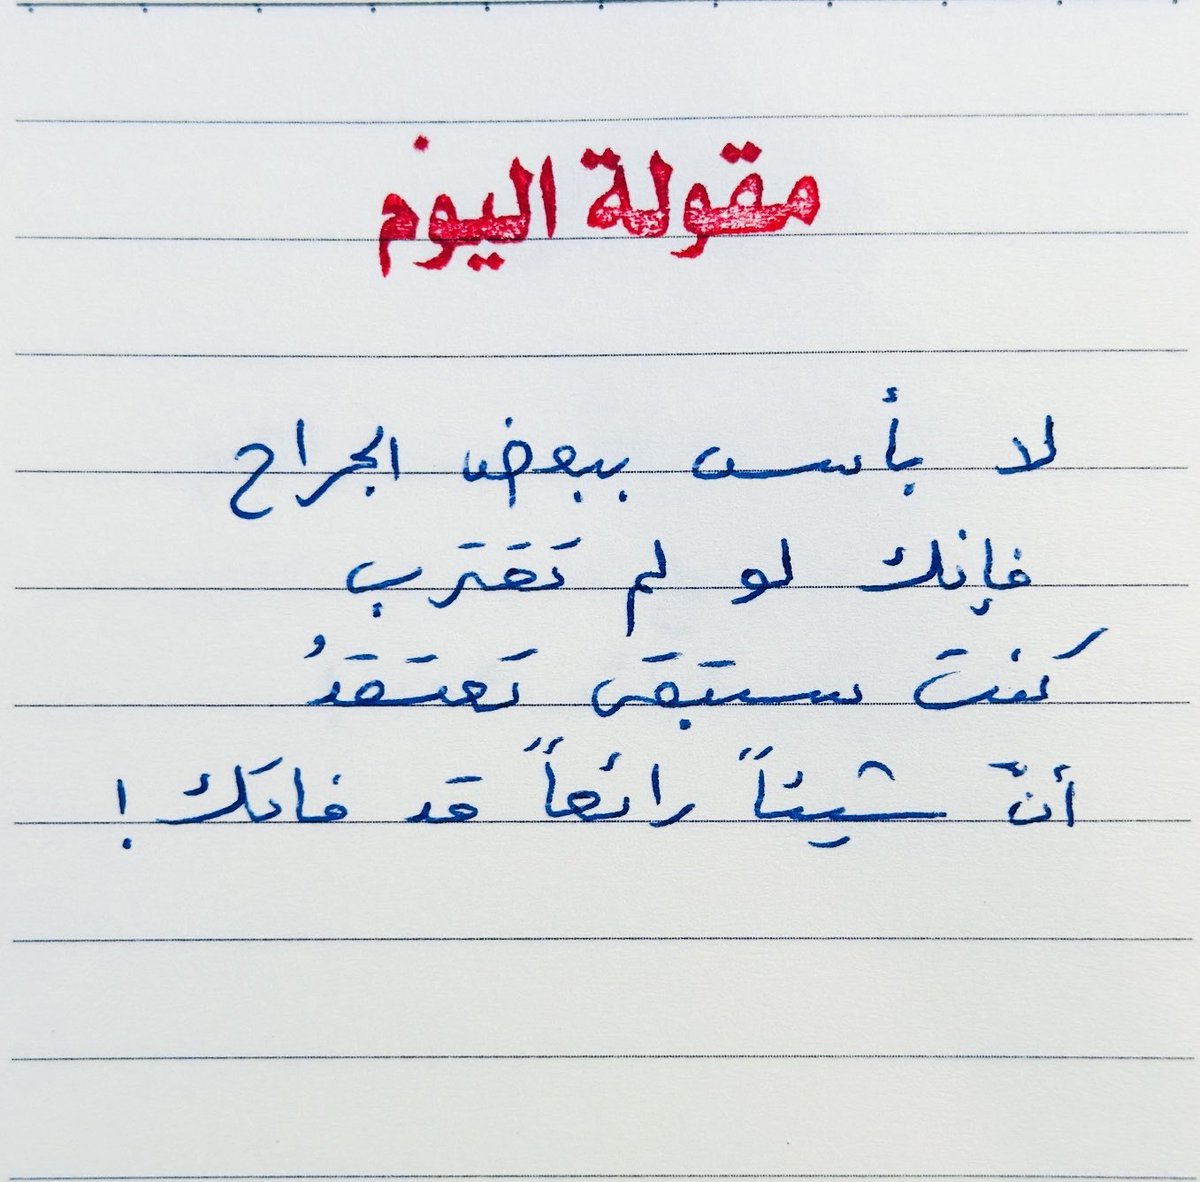 مقولة اليوم
لا بأس ببعض الجراح
فإنك لو لم تقترب
كنت ستبقى تعتقدُ
أنّ شيئاً رائعاً قد فاتك !